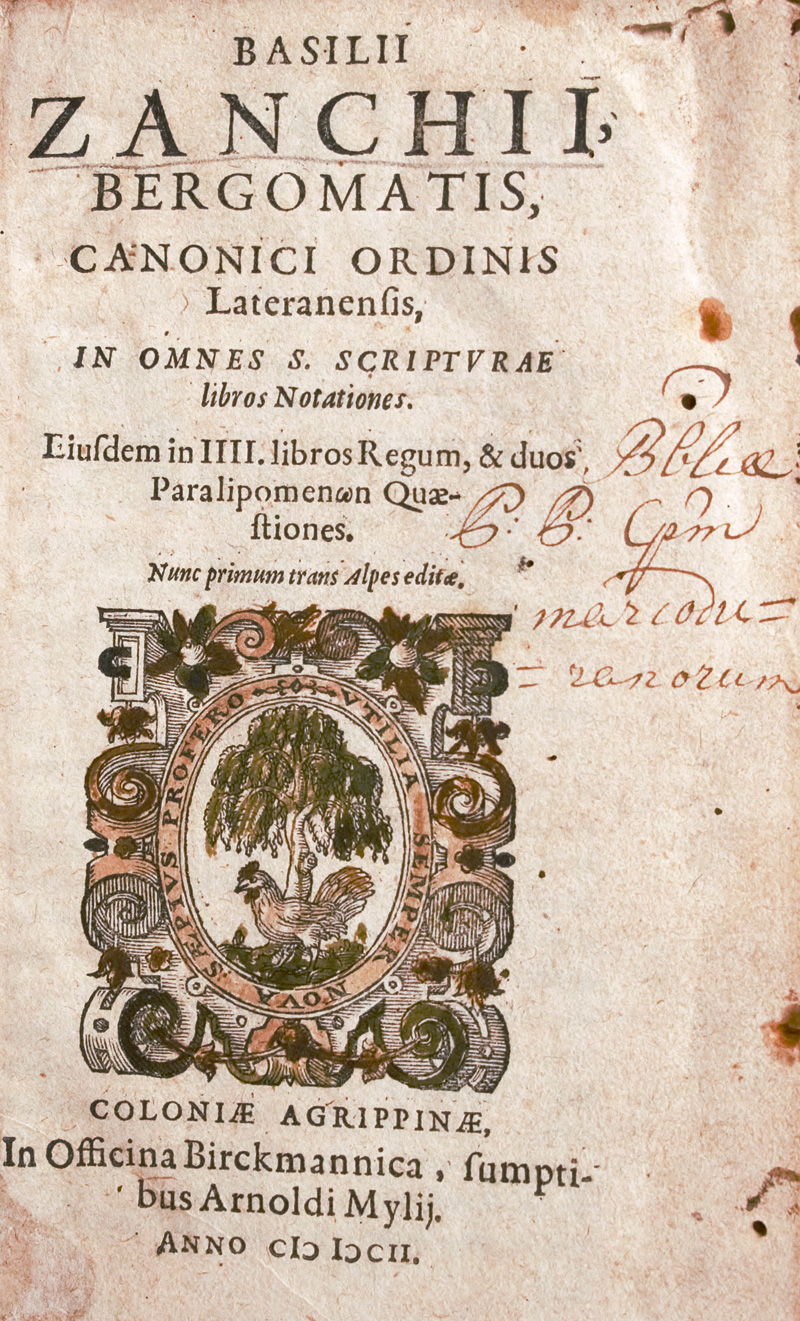 BASILII
ZANCHII,
BERGOMATIS,
CANONICI ORDINIS
Lateranenſis,
IN OMNES S. SCRIPTVRAE
libros Notationes.
Eiuſdem in IIII. libros Regum, & duos
Paralipomenωn Quæ-
ſtiones.
Nunc primum trans Alpes editæ.
Bbliæ
P: P: Cpm
marcodu=
=ranorum
SÆPIVS PROFERO VTILIA SEMPER NOVA
COLONIÆ AGRIPPINÆ,
In Officina Birckmannica, ſumpti-
bus Arnoldi Mylij.
ANNO CIↃ IↃCII.